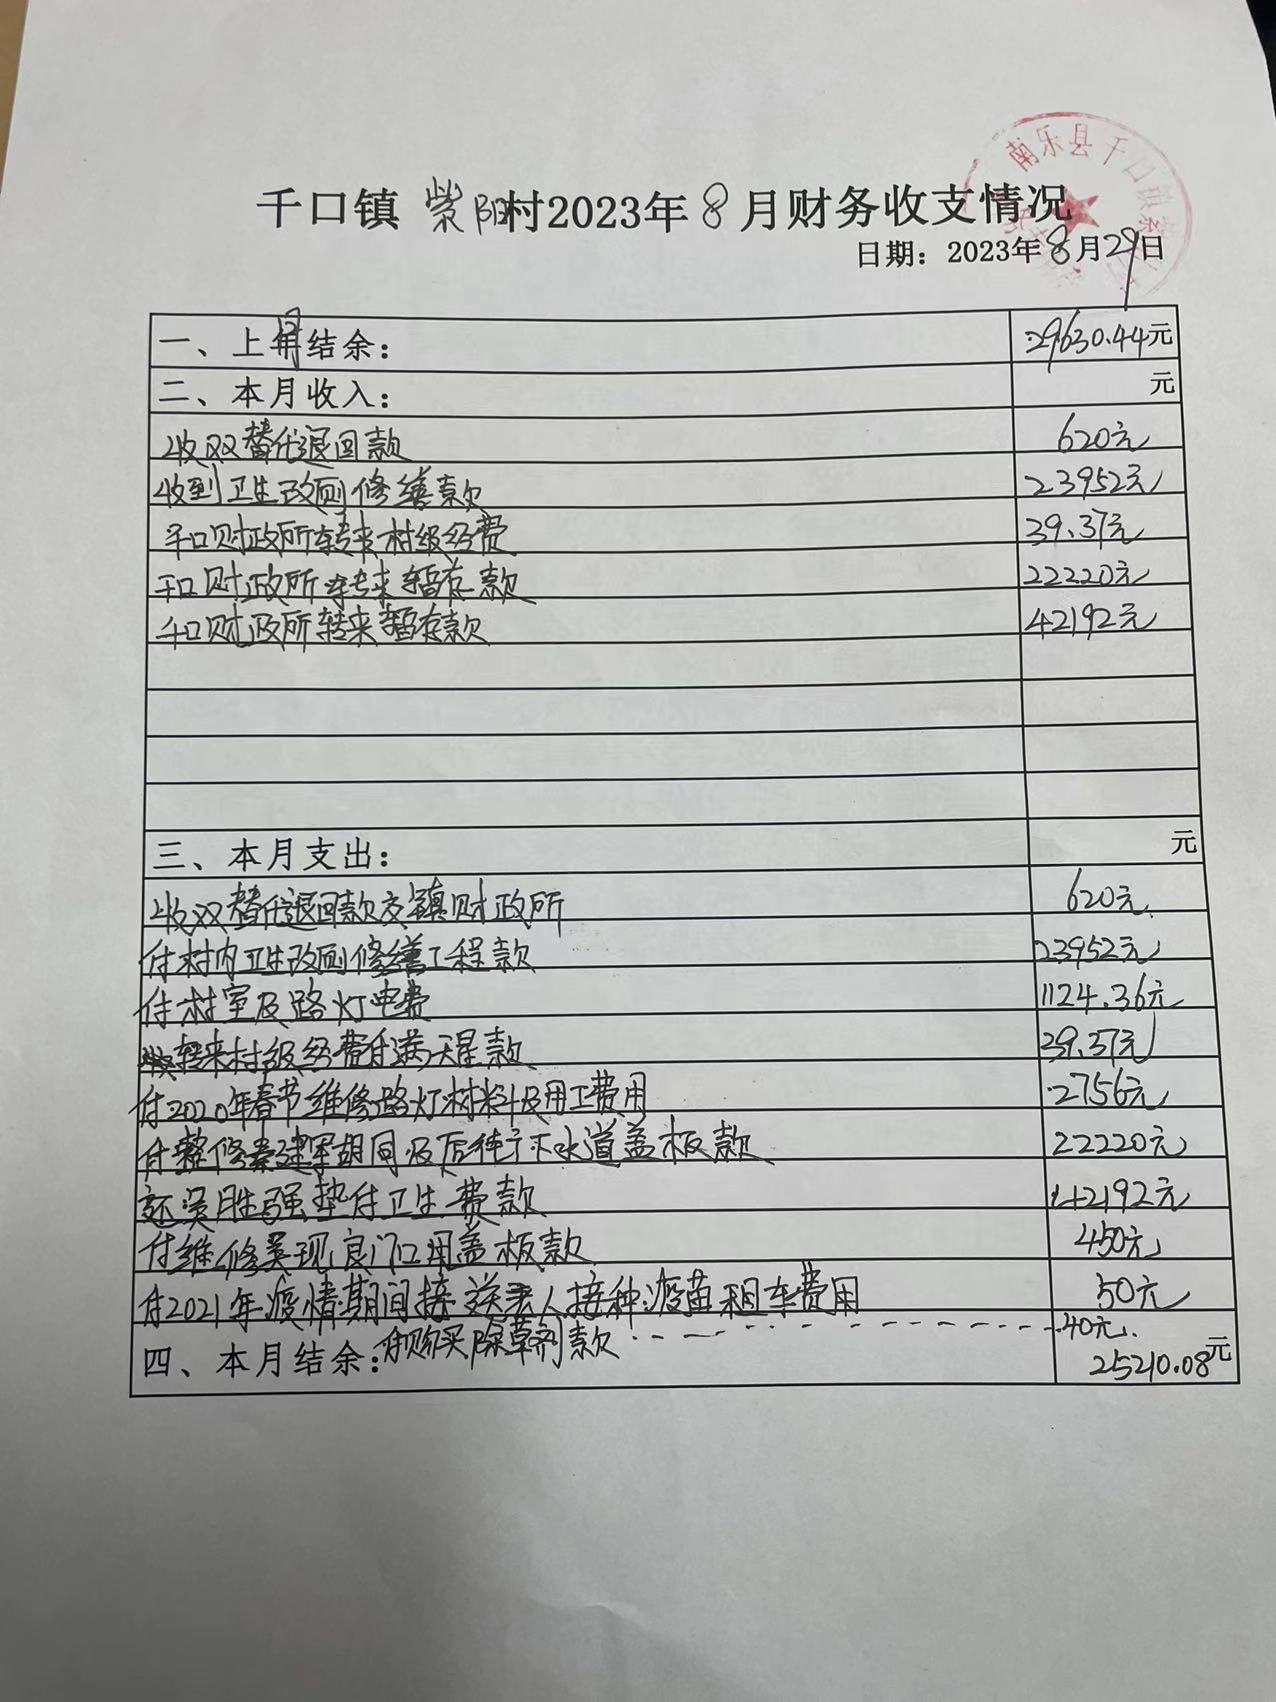 南乐县千口镇紫
千口镇紫阳村2023年8月财务收支情况
日期：2023年8月29日
一、上月结余： 29630.44元
二、本月收入： 元
收双替代退回款 620元
收到卫生改厕修缮款 23952元
千口财政所转来村级经费 39.37元
千口财政所转来暂存款 22220元
千口财政所转来暂存款 42192元
三、本月支出： 元
收双替代退回款交镇财政所 620元
付村内卫生改厕修缮工程款 23952元
付村室及路灯电费 1124.36元
转来村级经费付满天星款 39.37元
付2020年春节维修路灯材料及用工费用 2756元
付整修秦建军胡同及后街下水道盖板款 22220元
还吴胜强垫付卫生费款 42192元
付维修吴现良门口用盖板款 450元
付2021年疫情期间接送老人接种疫苗租车费用 50元
付购买除草剂款 40元
四、本月结余： 25210.08元